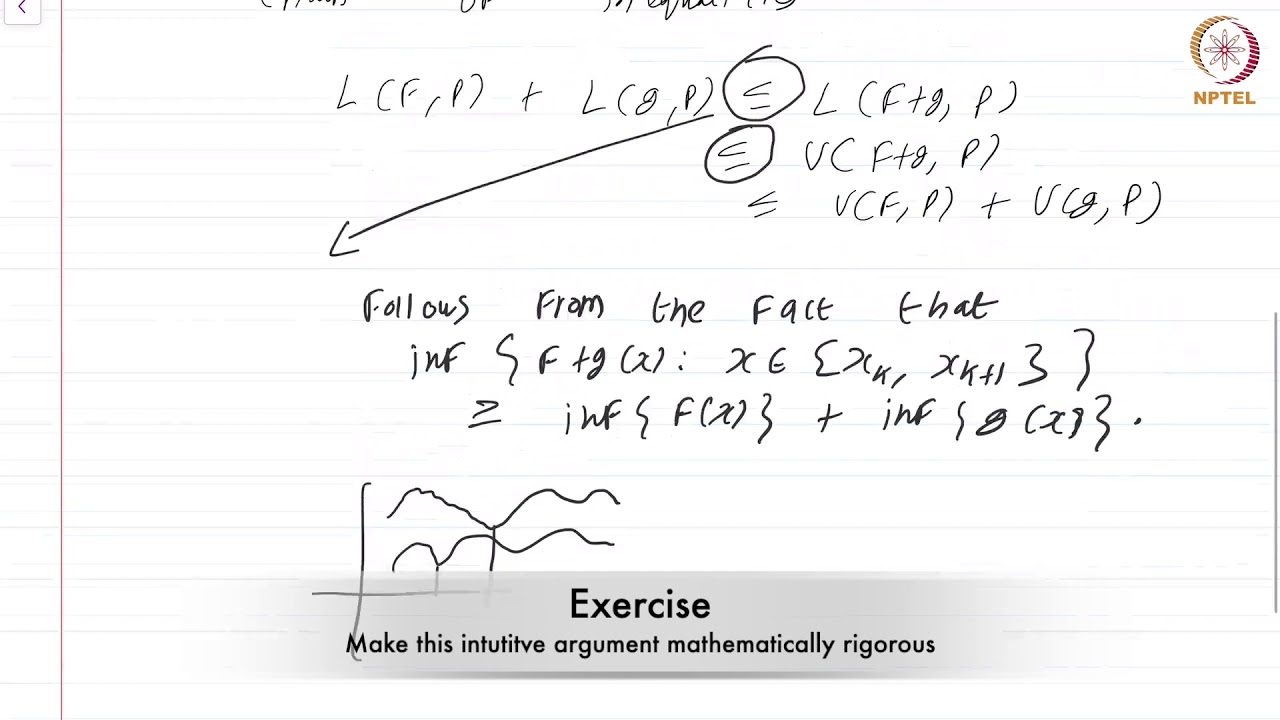 of inequality
NPTEL
L(F,P) + L(g,P) ≤ L(F+g, P)
≤ U(F+g, P)
≤ U(F,P) + U(g,P)
Follows From the Fact that
inf { F+g(x): x∈ {xₖ, xₖ₊₁} }
≥ inf{ F(x)} + inf{ g(x)}.
Exercise
Make this intutitve argument mathematically rigorous